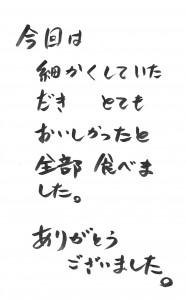 今回は
細かくしていた
だき とても
おいしかったと
全部 食べま
した。
ありがとう
ございました。